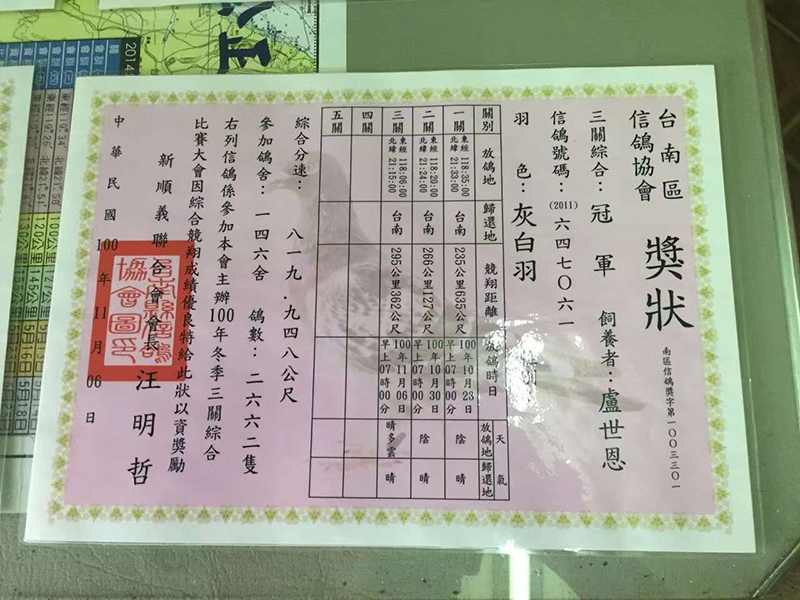 台南區
信鴿協會
獎狀
南區信鴿獎字第一〇〇三三〇一
三關綜合：冠軍 飼養者：盧世恩
信鴿號碼：(2011)六四七〇六一
羽色：灰白羽
關別 放鴿地 歸還地 競翔距離 放鴿時日 天氣 放鴿地 歸還地
一關 東經118:35:00 北緯21:33:00 台南 235公里635公尺 100年10月23日 早上07時00分 陰 晴
二關 東經118:20:00 北緯21:24:00 台南 266公里127公尺 100年10月30日 早上07時00分 陰 晴
三關 東經118:06:00 北緯21:15:00 台南 295公里362公尺 100年11月06日 早上07時00分 晴多雲 晴
四關
五關
綜合分速：八一九.九四八公尺
參加鴿舍：一四六舍 鴿數：二六六二隻
右列信鴿係參加本會主辦100年冬季三關綜合
比賽大會因綜合競翔成績優良特給此狀以資獎勵
新順義聯合會會長 汪明哲
中華民國100年11月06日
2014